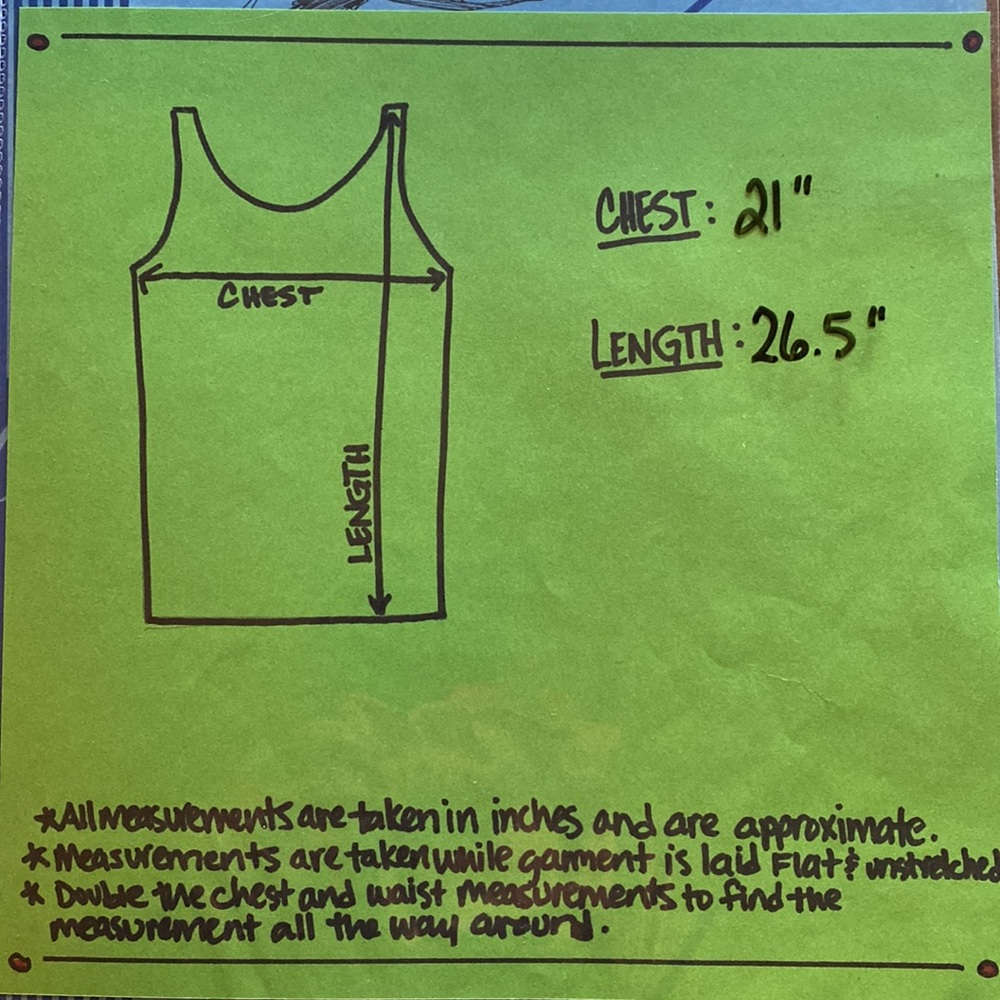 CHEST: 21"
CHEST
LENGTH: 26.5"
LENGTH
*All measurements are taken in inches and are approximate.
*Measurements are taken while garment is laid Flat & unstretched
* Double the chest and waist measurements to find the
measurement all the way around.